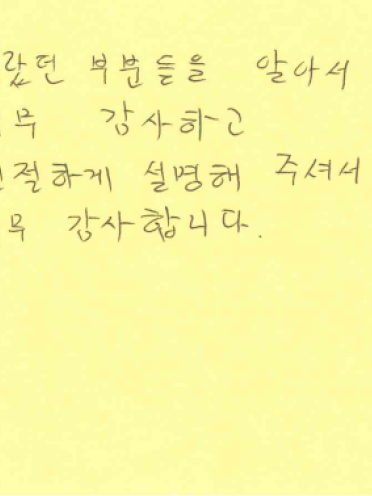 랐던 부분들을 알아서
무 감사하고
절하게 설명해 주셔서
무 감사합니다.